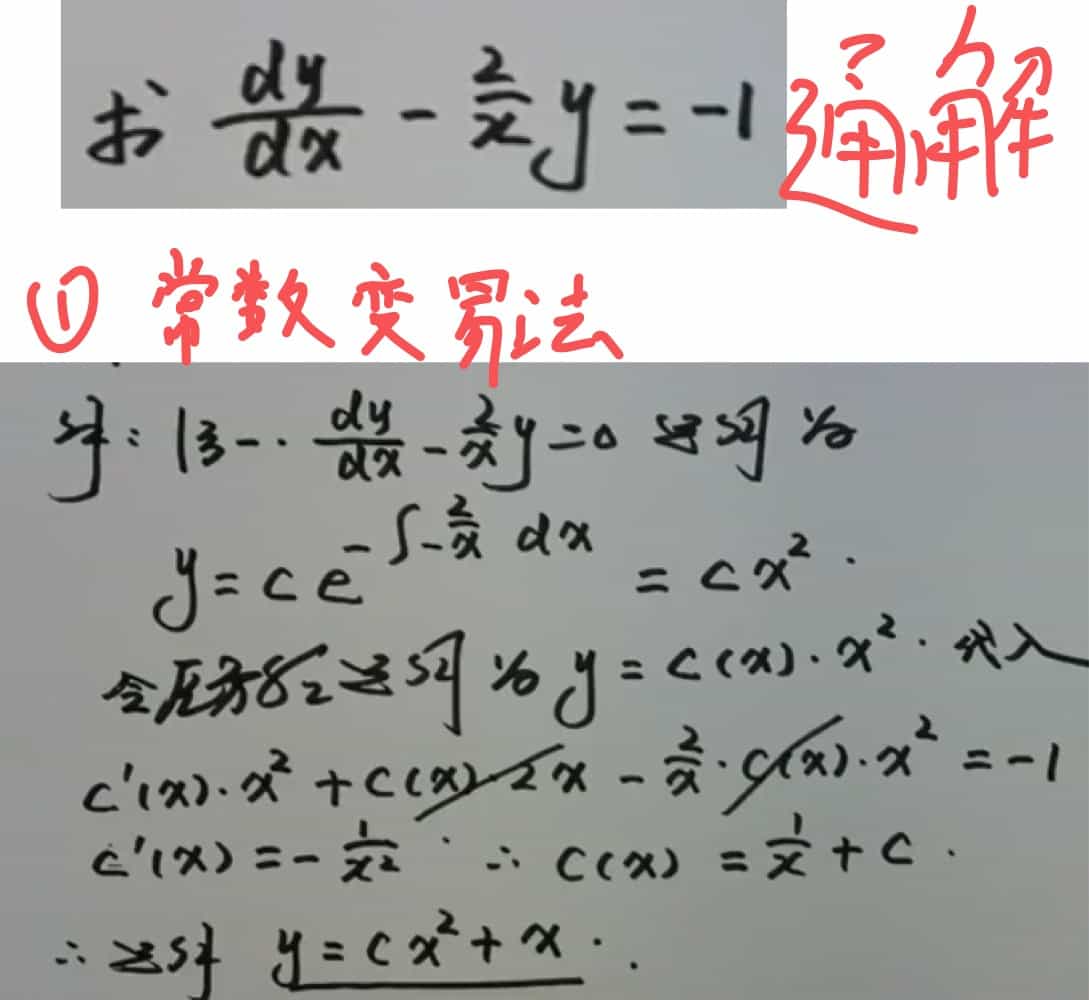 求 dy/dx - 2/x y = -1 通解
① 常数变易法
解: 1° dy/dx - 2/x y = 0 通解为
y = c e^{-∫-2/x dx} = cx².
令原方程通解为 y = c(x)·x². 代入
c'(x)·x² + c(x)·2x - 2/x·c(x)·x² = -1
c'(x) = -1/x² ∴ c(x) = 1/x + c.
∴ 通解 y = cx² + x.